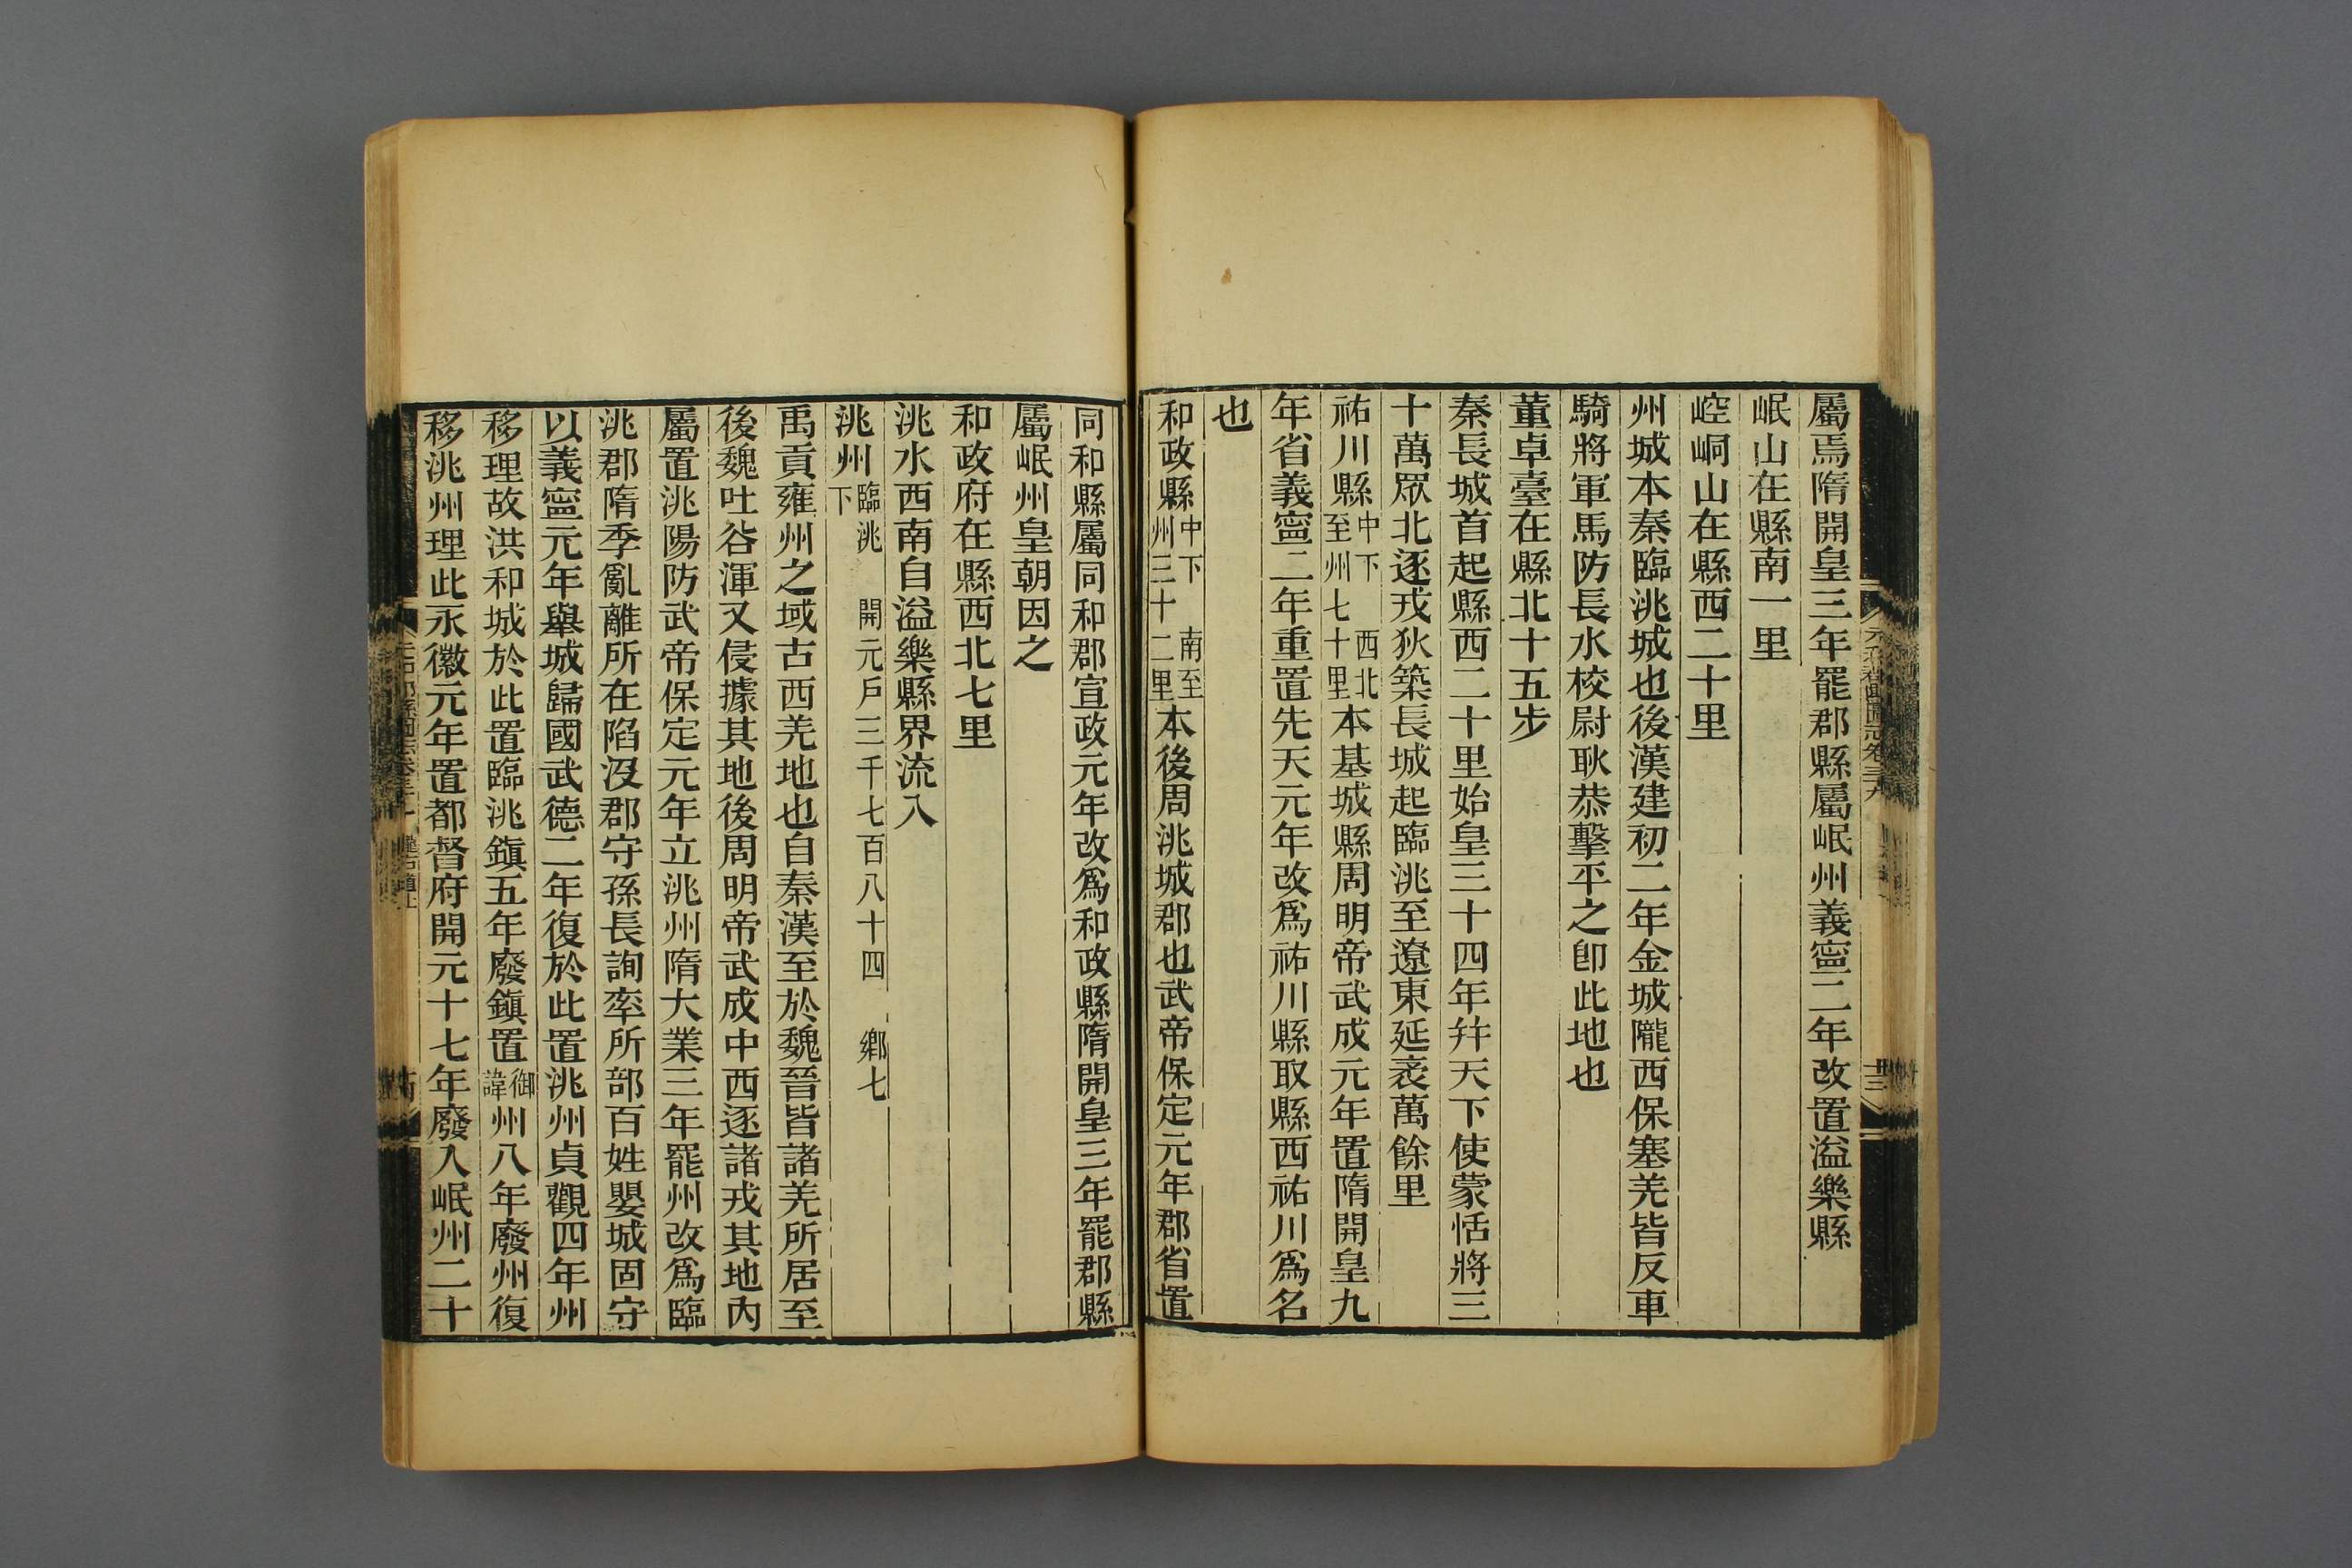 屬焉隋開皇三年罷郡縣屬岷州義寧二年改置溢樂縣
岷山在縣南一里
崆峒山在縣西二十里
州城本秦臨洮城也後漢建初二年金城隴西保塞羌皆反車
騎將軍馬防長水校尉耿恭擊平之卽此地也
董卓臺在縣北十五步
秦長城首起縣西二十里始皇三十四年幷天下使蒙恬將三
十萬眾北逐戎狄築長城起臨洮至遼東延袤萬餘里
祐川縣中下　西北至州七十里本基城縣周明帝武成元年置隋開皇九
年省義寧二年重置先天元年改爲祐川縣取縣西祐川爲名
也
和政縣中下　南至州三十二里本後周洮城郡也武帝保定元年郡省置
同和縣屬同和郡宣政元年改爲和政縣隋開皇三年罷郡縣
屬岷州皇朝因之
和政府在縣西北七里
洮水西南自溢樂縣界流入
洮州臨洮下　開元戶三千七百八十四　鄉七
禹貢雍州之域古西羌地也自秦漢至於魏晉皆諸羌所居至
後魏吐谷渾又侵據其地後周明帝武成中西逐諸戎其地內
屬置洮陽防武帝保定元年立洮州隋大業三年罷州改爲臨
洮郡隋季亂離所在陷沒郡守孫長詢率所部百姓嬰城固守
以義寧元年舉城歸國武德二年復於此置洮州貞觀四年州
移理故洪和城於此置臨洮鎮五年廢鎮置御諱州八年廢州復
移洮州理此永徽元年置都督府開元十七年廢入岷州二十